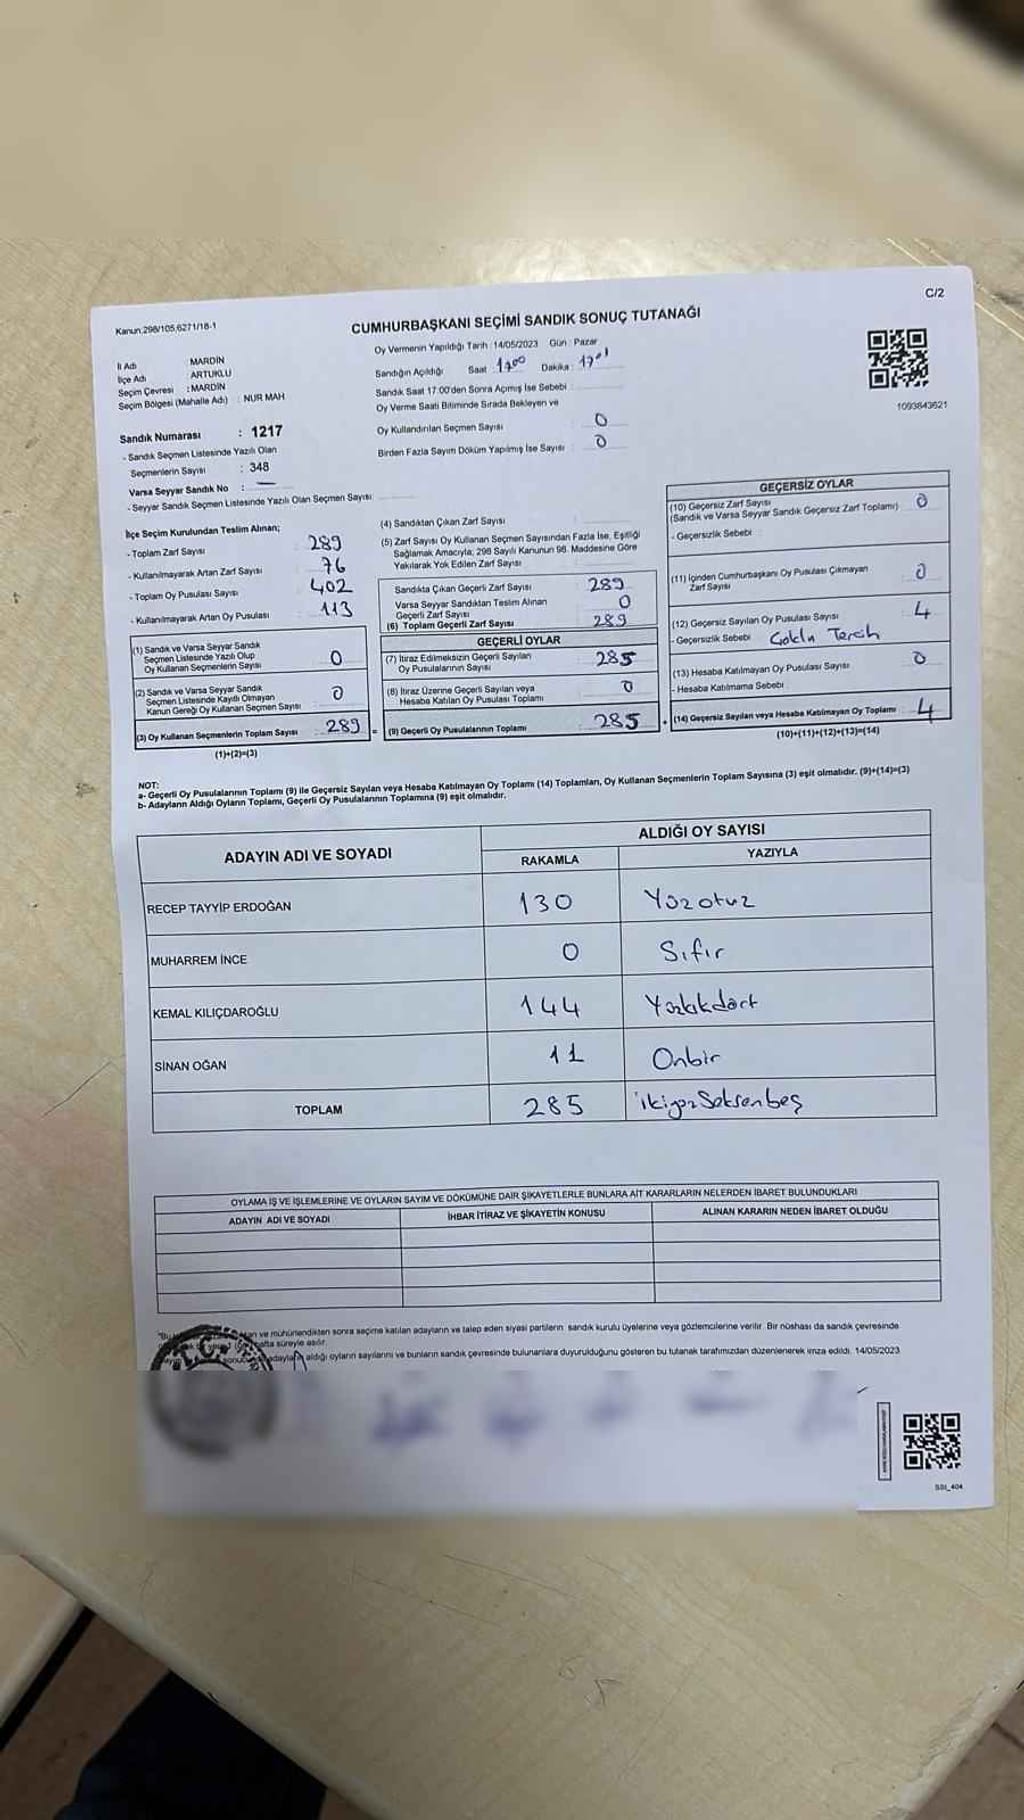 C/2
Kanun:298/105,6271/18-1
CUMHURBAŞKANI SEÇİMİ SANDIK SONUÇ TUTANAĞI
İl Adı : MARDİN
İlçe Adı : ARTUKLU
Seçim Çevresi : MARDİN
Seçim Bölgesi (Mahalle Adı) : NUR MAH
Oy Vermenin Yapıldığı Tarih : 14/05/2023 Gün : Pazar
Sandığın Açıldığı Saat : 17:00 Dakika : 17:01
Sandık Saat 17:00'den Sonra Açmış İse Sebebi :
Oy Verme Saati Bitiminde Sırada Bekleyen ve
Oy Kullandırılan Seçmen Sayısı 0
Birden Fazla Sayım Döküm Yapılmış İse Sayısı 0
1093843621
Sandık Numarası : 1217
- Sandık Seçmen Listesinde Yazılı Olan
Seçmenlerin Sayısı : 348
Varsa Seyyar Sandık No : —
- Seyyar Sandık Seçmen Listesinde Yazılı Olan Seçmen Sayısı:
İlçe Seçim Kurulundan Teslim Alınan;
- Toplam Zarf Sayısı 289
- Kullanılmayarak Artan Zarf Sayısı 76
- Toplam Oy Pusulası Sayısı 402
- Kullanılmayarak Artan Oy Pusulası 113
(1) Sandık ve Varsa Seyyar Sandık
Seçmen Listesinde Yazılı Olup
Oy Kullanan Seçmenlerin Sayısı 0
(2) Sandık ve Varsa Seyyar Sandık
Seçmen Listesinde Kayıtlı Olmayan
Kanun Gereği Oy Kullanan Seçmen Sayısı 0
(3) Oy Kullanan Seçmenlerin Toplam Sayısı 289 =
(1)+(2)=(3)
(4) Sandıktan Çıkan Zarf Sayısı
(5) Zarf Sayısı Oy Kullanan Seçmen Sayısından Fazla İse, Eşitliği
Sağlamak Amacıyla; 298 Sayılı Kanunun 98. Maddesine Göre
Yakılarak Yok Edilen Zarf Sayısı
Sandıkta Çıkan Geçerli Zarf Sayısı 289
Varsa Seyyar Sandıktan Teslim Alınan
Geçerli Zarf Sayısı 0
(6) Toplam Geçerli Zarf Sayısı 289
GEÇERLİ OYLAR
(7) İtiraz Edilmeksizin Geçerli Sayılan
Oy Pusulalarının Sayısı 285
(8) İtiraz Üzerine Geçerli Sayılan veya
Hesaba Katılan Oy Pusulası Toplamı 0
(9) Geçerli Oy Pusulalarının Toplamı 285 +
GEÇERSİZ OYLAR
(10) Geçersiz Zarf Sayısı
(Sandık ve Varsa Seyyar Sandık Geçersiz Zarf Toplamı) 0
- Geçersizlik Sebebi
(11) İçinden Cumhurbaşkanı Oy Pusulası Çıkmayan
Zarf Sayısı 0
(12) Geçersiz Sayılan Oy Pusulası Sayısı 4
- Geçersizlik Sebebi Çoklu Tercih
(13) Hesaba Katılmayan Oy Pusulası Sayısı 0
- Hesaba Katılmama Sebebi
(14) Geçersiz Sayılan veya Hesaba Katılmayan Oy Toplamı 4
(10)+(11)+(12)+(13)=(14)
NOT:
a- Geçerli Oy Pusulalarının Toplamı (9) ile Geçersiz Sayılan veya Hesaba Katılmayan Oy Toplamı (14) Toplamları, Oy Kullanan Seçmenlerin Toplam Sayısına (3) eşit olmalıdır. (9)+(14)=(3)
b- Adayların Aldığı Oyların Toplamı, Geçerli Oy Pusulalarının Toplamına (9) eşit olmalıdır.
ADAYIN ADI VE SOYADI
ALDIĞI OY SAYISI
RAKAMLA YAZIYLA
RECEP TAYYİP ERDOĞAN 130 Yüzotuz
MUHARREM İNCE 0 Sıfır
KEMAL KILIÇDAROĞLU 144 Yüzkırkdört
SİNAN OĞAN 11 Onbir
TOPLAM 285 ikiyüzSeksenbeş
OYLAMA İŞ VE İŞLEMLERİNE VE OYLARIN SAYIM VE DÖKÜMÜNE DAİR ŞİKAYETLERLE BUNLARA AİT KARARLARIN NELERDEN İBARET BULUNDUKLARI
ADAYIN ADI VE SOYADI İHBAR İTİRAZ VE ŞİKAYETİN KONUSU ALINAN KARARIN NEDEN İBARET OLDUĞU
ve mühürlendikten sonra seçime katılan adayların ve talep eden siyasi partilerin sandık kurulu üyelerine veya gözlemcilerine verilir. Bir nüshası da sandık çevresinde
hafta süreyle asılır.
aldığı oyların sayılarını ve bunların sandık çevresinde bulunanlara duyurulduğunu gösteren bu tutanak tarafımızdan düzenlenerek imza edildi. 14/05/2023
T.C.
SSI_404